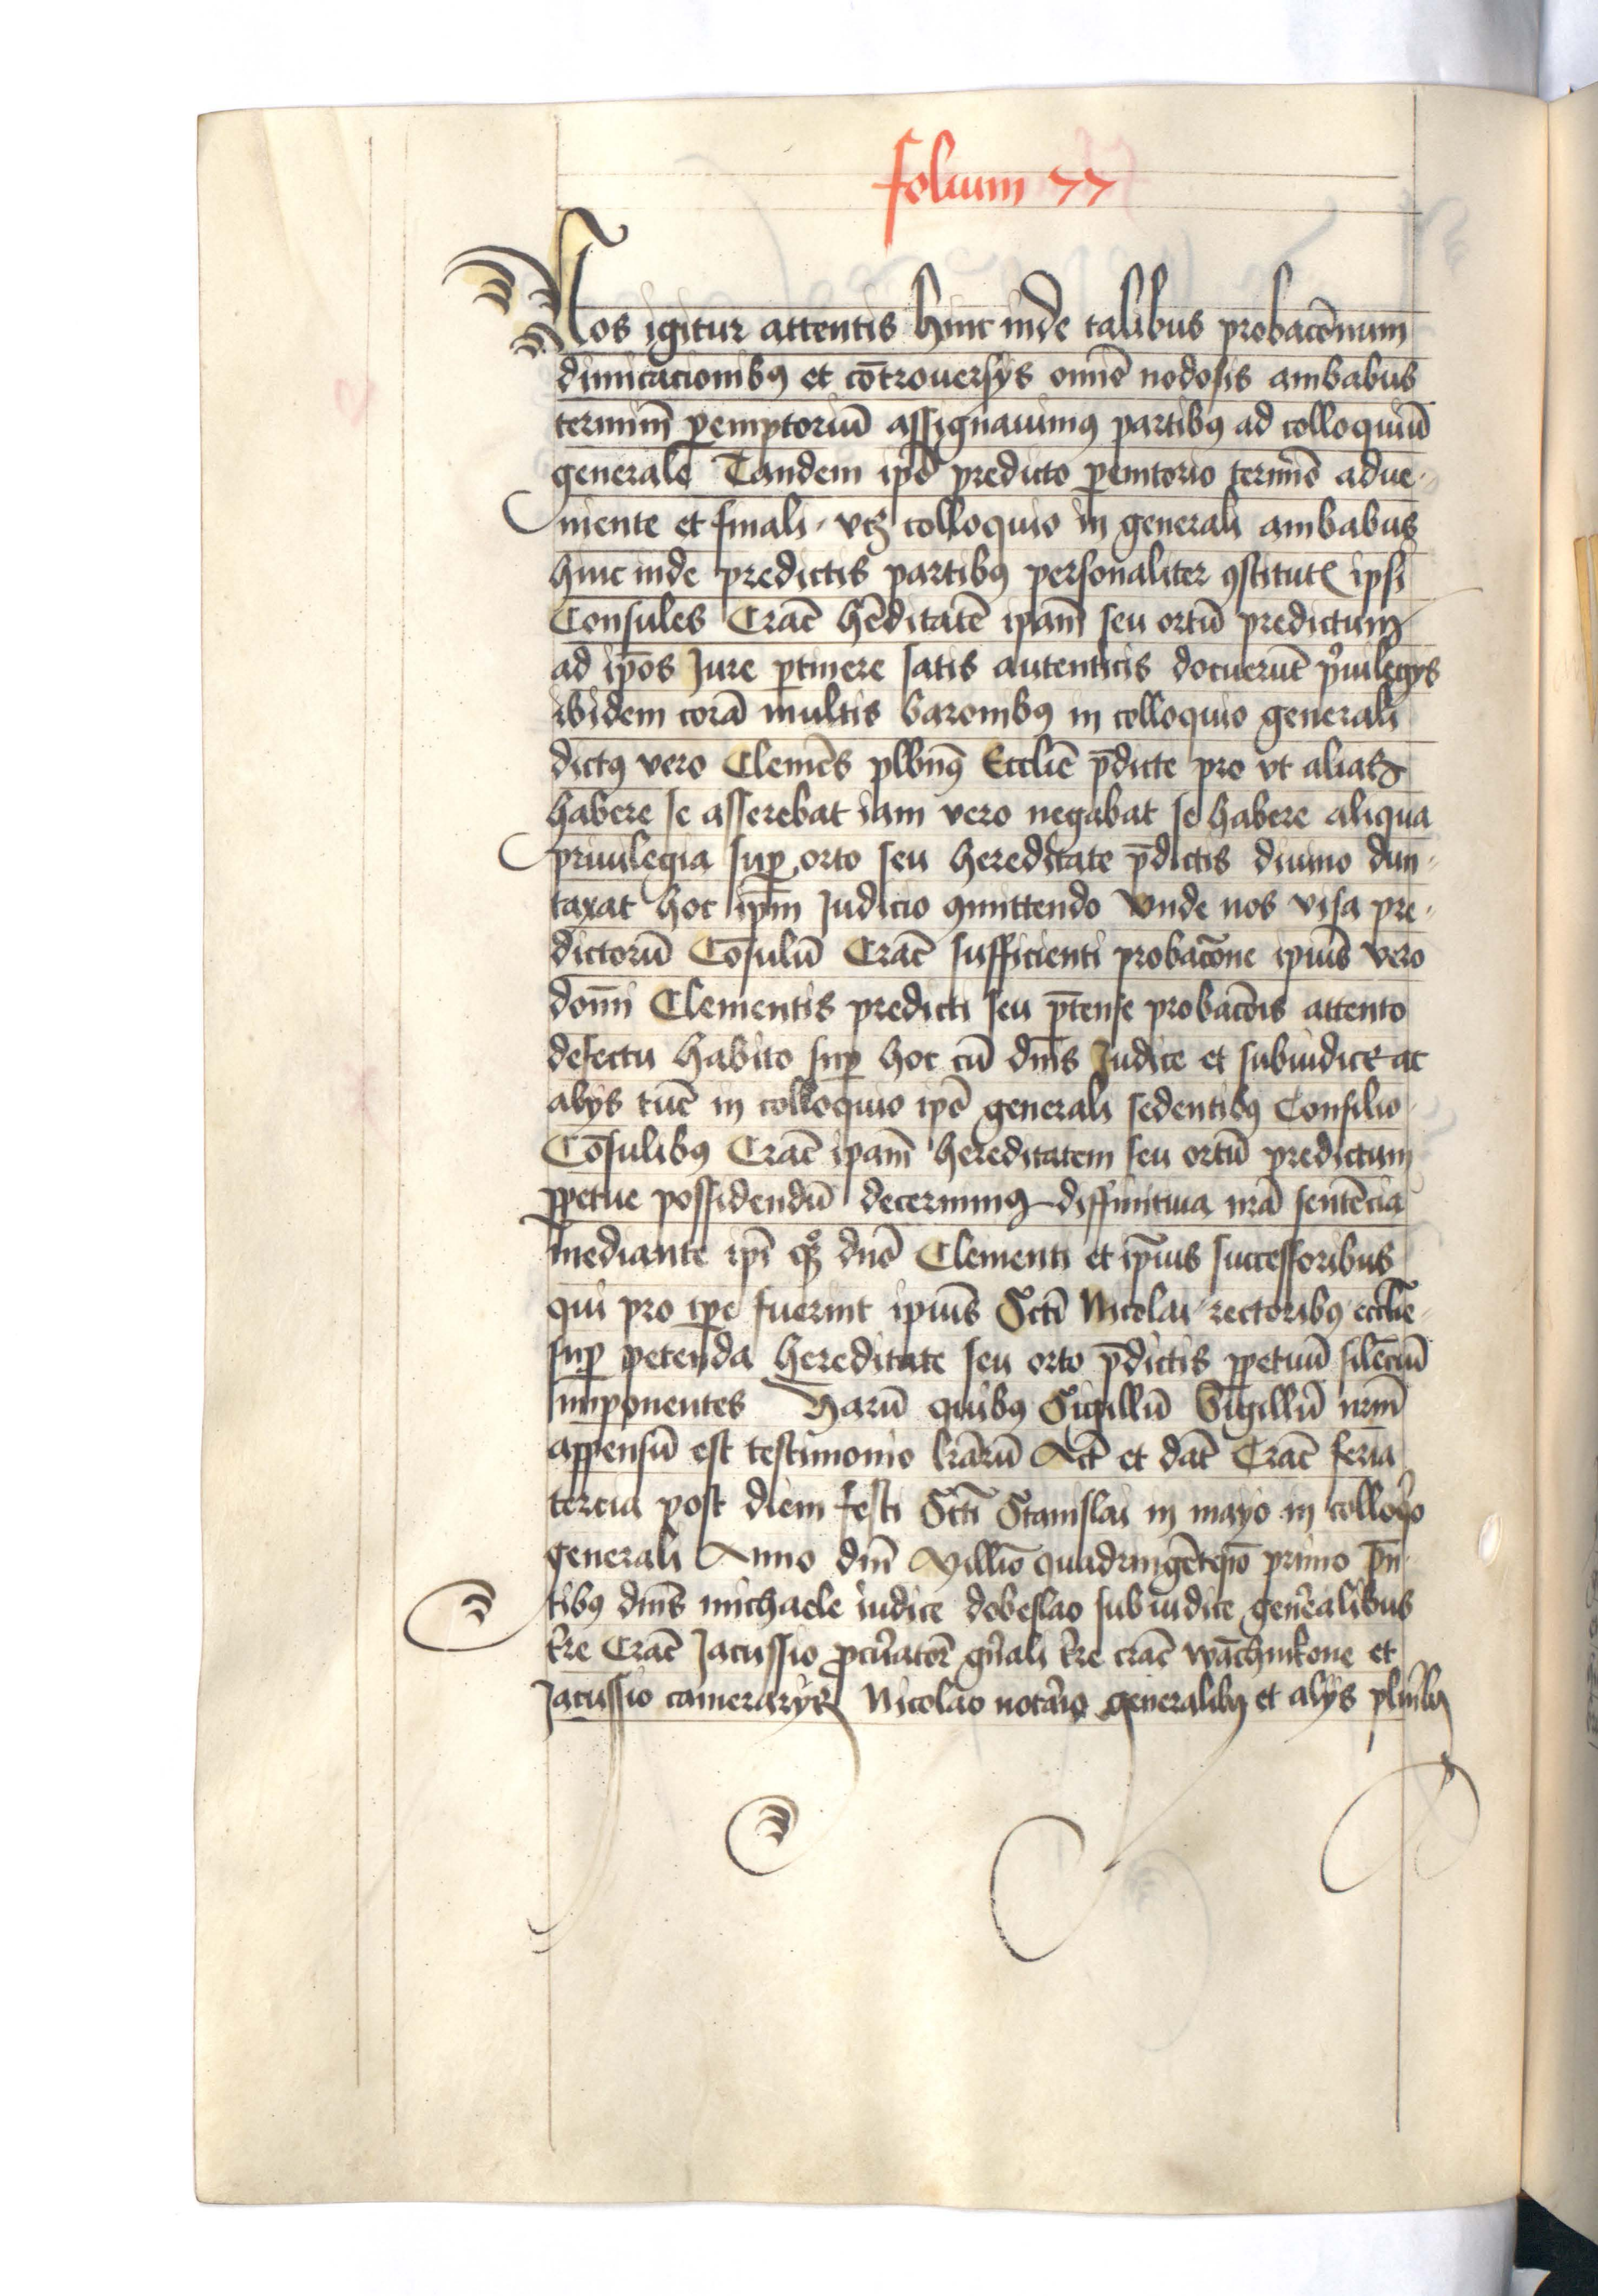 folium 77
Nos igitur attentis hinc inde talibus probacōnum
dimicacionibꝯ et cōtrouersys om̄ē nodosis ambabus
terminū ꝑemptoriū assignauimꝯ partibꝯ ad colloquiū
generale Tandem ip̄o predicto ꝑemtorio termīo adue-
niente et finali vtꝫ colloquio in generali ambabus
hinc inde predictis partibꝯ personaliter ꝯstitutꝭ ipsi
Consules Crac̄ hēditatē ip̄am seu ortū predictum
ad ip̄os Jure ꝑtinere satis autenticis docuerūt pͥuilegys
ibidem corā multis baronibꝯ in colloquio generali
dictꝯ vero Clemēs plbn̄ꝯ Eccl̄ie p̄dicte pro vt alias
habere se asserebat iam vero negabat se habere aliqua
priuilegia suꝑ orto seu hereditate p̄dictis diuino dun-
taxat hoc ip̄m Judicio ꝯmittendo Vnde nos visa pre-
dictorū Cōsulū Crac̄ sufficienti probacōne ip̄ius vero
dom̄i Clementis predicti seu p̄tense probacōis attento
defectu habito suꝑ hoc cū dn̄is Judice et subiudice ac
alys tūc in colloquio ip̄o generali sedentibꝯ Consilio
Cōsulibꝯ Crac̄ ip̄am hereditatem seu ortū predictum
ꝑpetue possidendū decernimꝯ diffinitiua nr̄a sentēcia
mediante ip̄i qͦꝫ dn̄o Clementi et ip̄ius successoribus
qui pro tꝑe fuerint ip̄ius Sctī Nicolai rectoribꝯ eccl̄ie
suꝑ petenda hereditate seu orto p̄dictis ꝑpetuū silēciū
imponentes Harū quibꝯ Sigillū Sigillū nr̄m
appensū est testimonio lr̄arū Act̄ et dat̄ Crac̄ feria
tercia post diem festi Sctī Stanislai in mayo in colloqͦo
generali Anno dn̄i Millīo quadringētesīo primo p̄n-
tibꝯ dn̄is michaele iudice dobeslao subiudice gen̄alibus
tr̄e Crac̄ Jacussio ꝓcūatōr gn̄ali tr̄e crac̄ wāchnikone et
Jacussio camerarys Nicolao notāio generalibꝯ et alys plūibꝯ